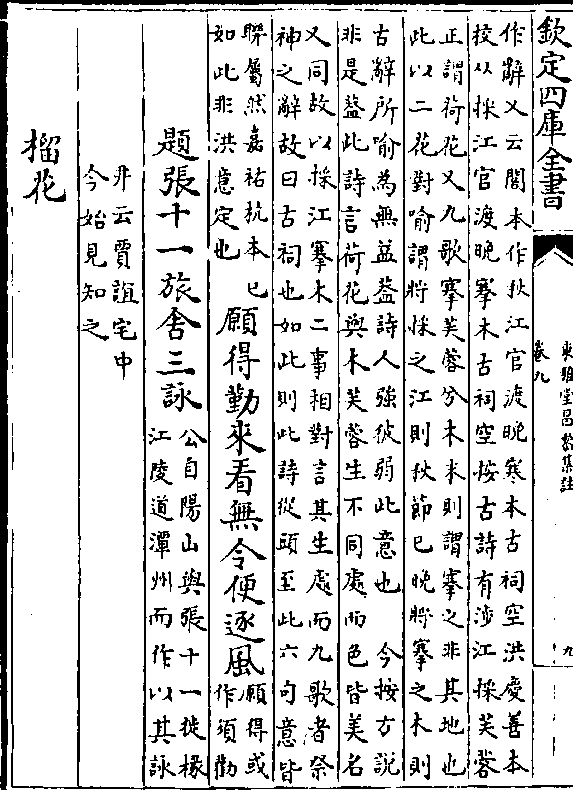 欽定四庫全書
東雅堂昌黎集註
卷九
九
作辭又云閣本作秋江官渡晚寒木古祠空洪慶善本
校从採江官渡晚搴木古祠空按古詩有涉江採芙蓉
正謂荷花又九歌搴芙蓉兮木末則謂搴之非其地也
此以二花對喻謂將採之江則秋節已晚將搴之木則
古辭所喻為無益葢詩人強彼弱此意也　今按方說
非是葢此詩言荷花與木芙蓉生不同處而色皆美名
又同故以採江搴木二事相對言其生處而九歌者祭
神之辭故曰古祠也如此則此詩從頭至此六句意皆
聨屬然嘉祐杭本已
如此非洪意定也
願得勤來看無令便逐風
願得或
作須勸
題張十一旅舍三詠
公自陽山與張十一徙掾
江陵道潭州而作以其詠
井云賈誼宅中
今始見知之
榴花